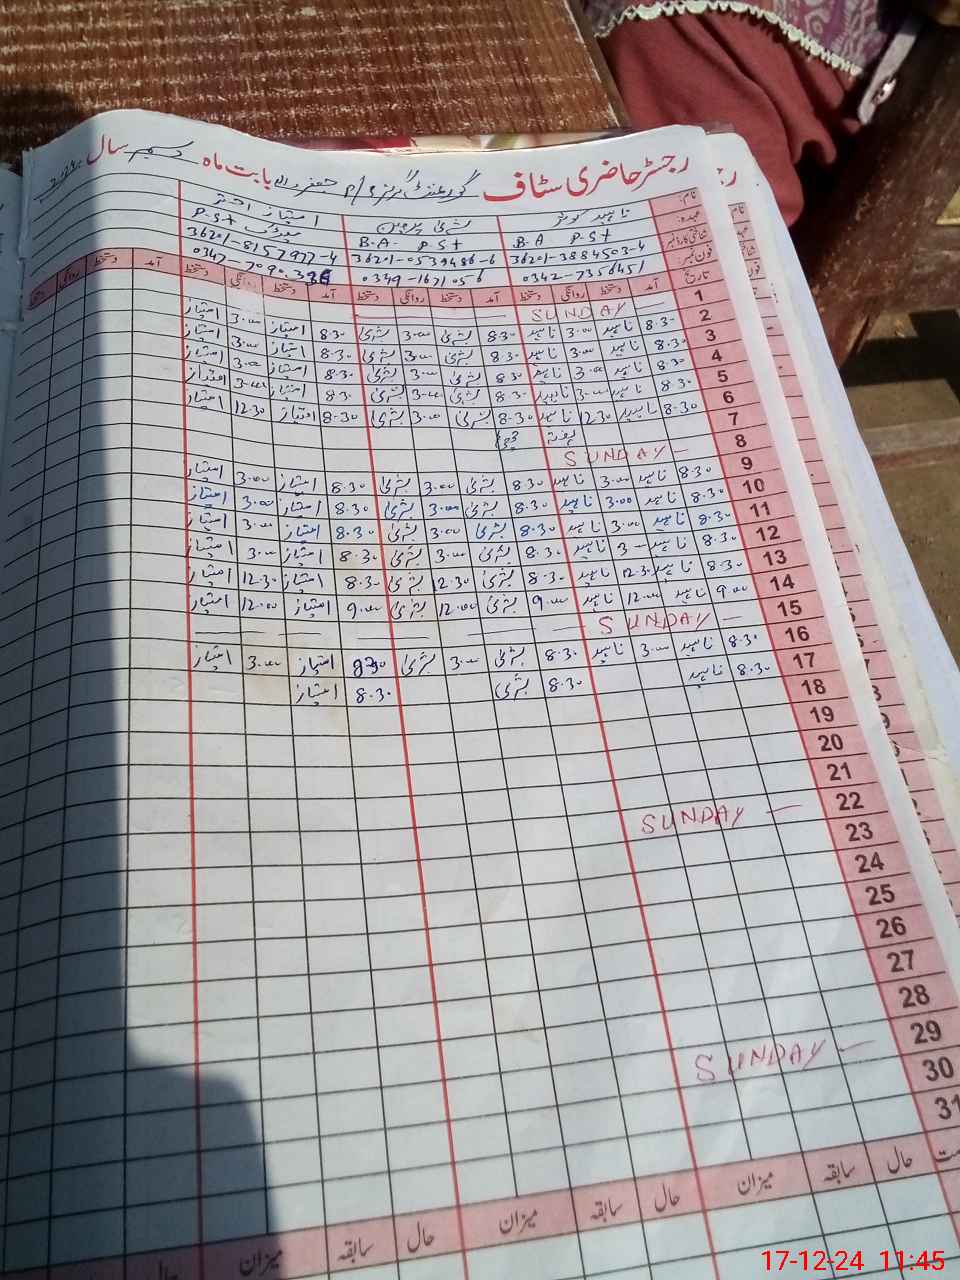 رجسٹر حاضری سٹاف گورنمنٹ گرلز p/s جعفر والا بابت ماہ دسمبر سال
نام: ناہید کوثر بشریٰ پروین امتیاز اختر
عہدہ: B.A P.S+ B.A- P.S+ P.S+
شناختی کارڈ نمبر 36201-3884503-4 36201-0539486-6 36201-8157977-4
فون نمبر: 0342-7356451 0349-1671056
تاریخ آمد دستخط روانگی دستخط آمد دستخط روانگی دستخط آمد دستخط روانگی دستخط آمد دستخط روانگی دستخط
1 SUNDAY
2 8.30 ناہید 3.00 ناہید 8.30 بشریٰ 3.00 بشریٰ 8.30 امتیاز 3.00 امتیاز
3 8.30 ناہید 3.00 ناہید 8.30 بشریٰ 3.00 بشریٰ 8.30 امتیاز 3.00 امتیاز
4 8.30 ناہید 3.00 ناہید 8.30 بشریٰ 3.00 بشریٰ 8.30 امتیاز 3.00 امتیاز
5 8.30 ناہید 3.00 ناہید 8.30 بشریٰ 3.00 بشریٰ 8.30 امتیاز 3.00 امتیاز
6 8.30 ناہید 12.30 ناہید 8.30 بشریٰ 3.00 بشریٰ 8.30 امتیاز 12.30 امتیاز
7 ہفتہ چھٹی
8 SUNDAY –
9 8.30 ناہید 3.00 ناہید 8.30 بشریٰ 3.00 بشریٰ 8.30 امتیاز 3.00 امتیاز
10 8.30 ناہید 3.00 ناہید 8.30 بشریٰ 3.00 بشریٰ 8.30 امتیاز 3.00 امتیاز
11 8.30 ناہید 3.00 ناہید 8.30 بشریٰ 3.00 بشریٰ 8.30 امتیاز 3.00 امتیاز
12 8.30 ناہید 3– ناہید 8.30 بشریٰ 3.00 بشریٰ 8.30 امتیاز 3.00 امتیاز
13 8.30 ناہید 12.30 ناہید 8.30 بشریٰ 12.30 بشریٰ 8.30 امتیاز 12.30 امتیاز
14 9.00 ناہید 12.00 ناہید 9.00 بشریٰ 12.00 بشریٰ 9.00 امتیاز 12.00 امتیاز
15 SUNDAY –
16 8.30 ناہید 3.00 ناہید 8.30 بشریٰ 3.00 بشریٰ 8.30 امتیاز 3.00 امتیاز
17 8.30 ناہید 8.30 بشریٰ 8.30 امتیاز
18
19
20
21
22 SUNDAY –
23
24
25
26
27
28
29 SUNDAY –
30
31
حال سابقہ میزان حال سابقہ میزان حال سابقہ میزان حال
17-12-24 11:45